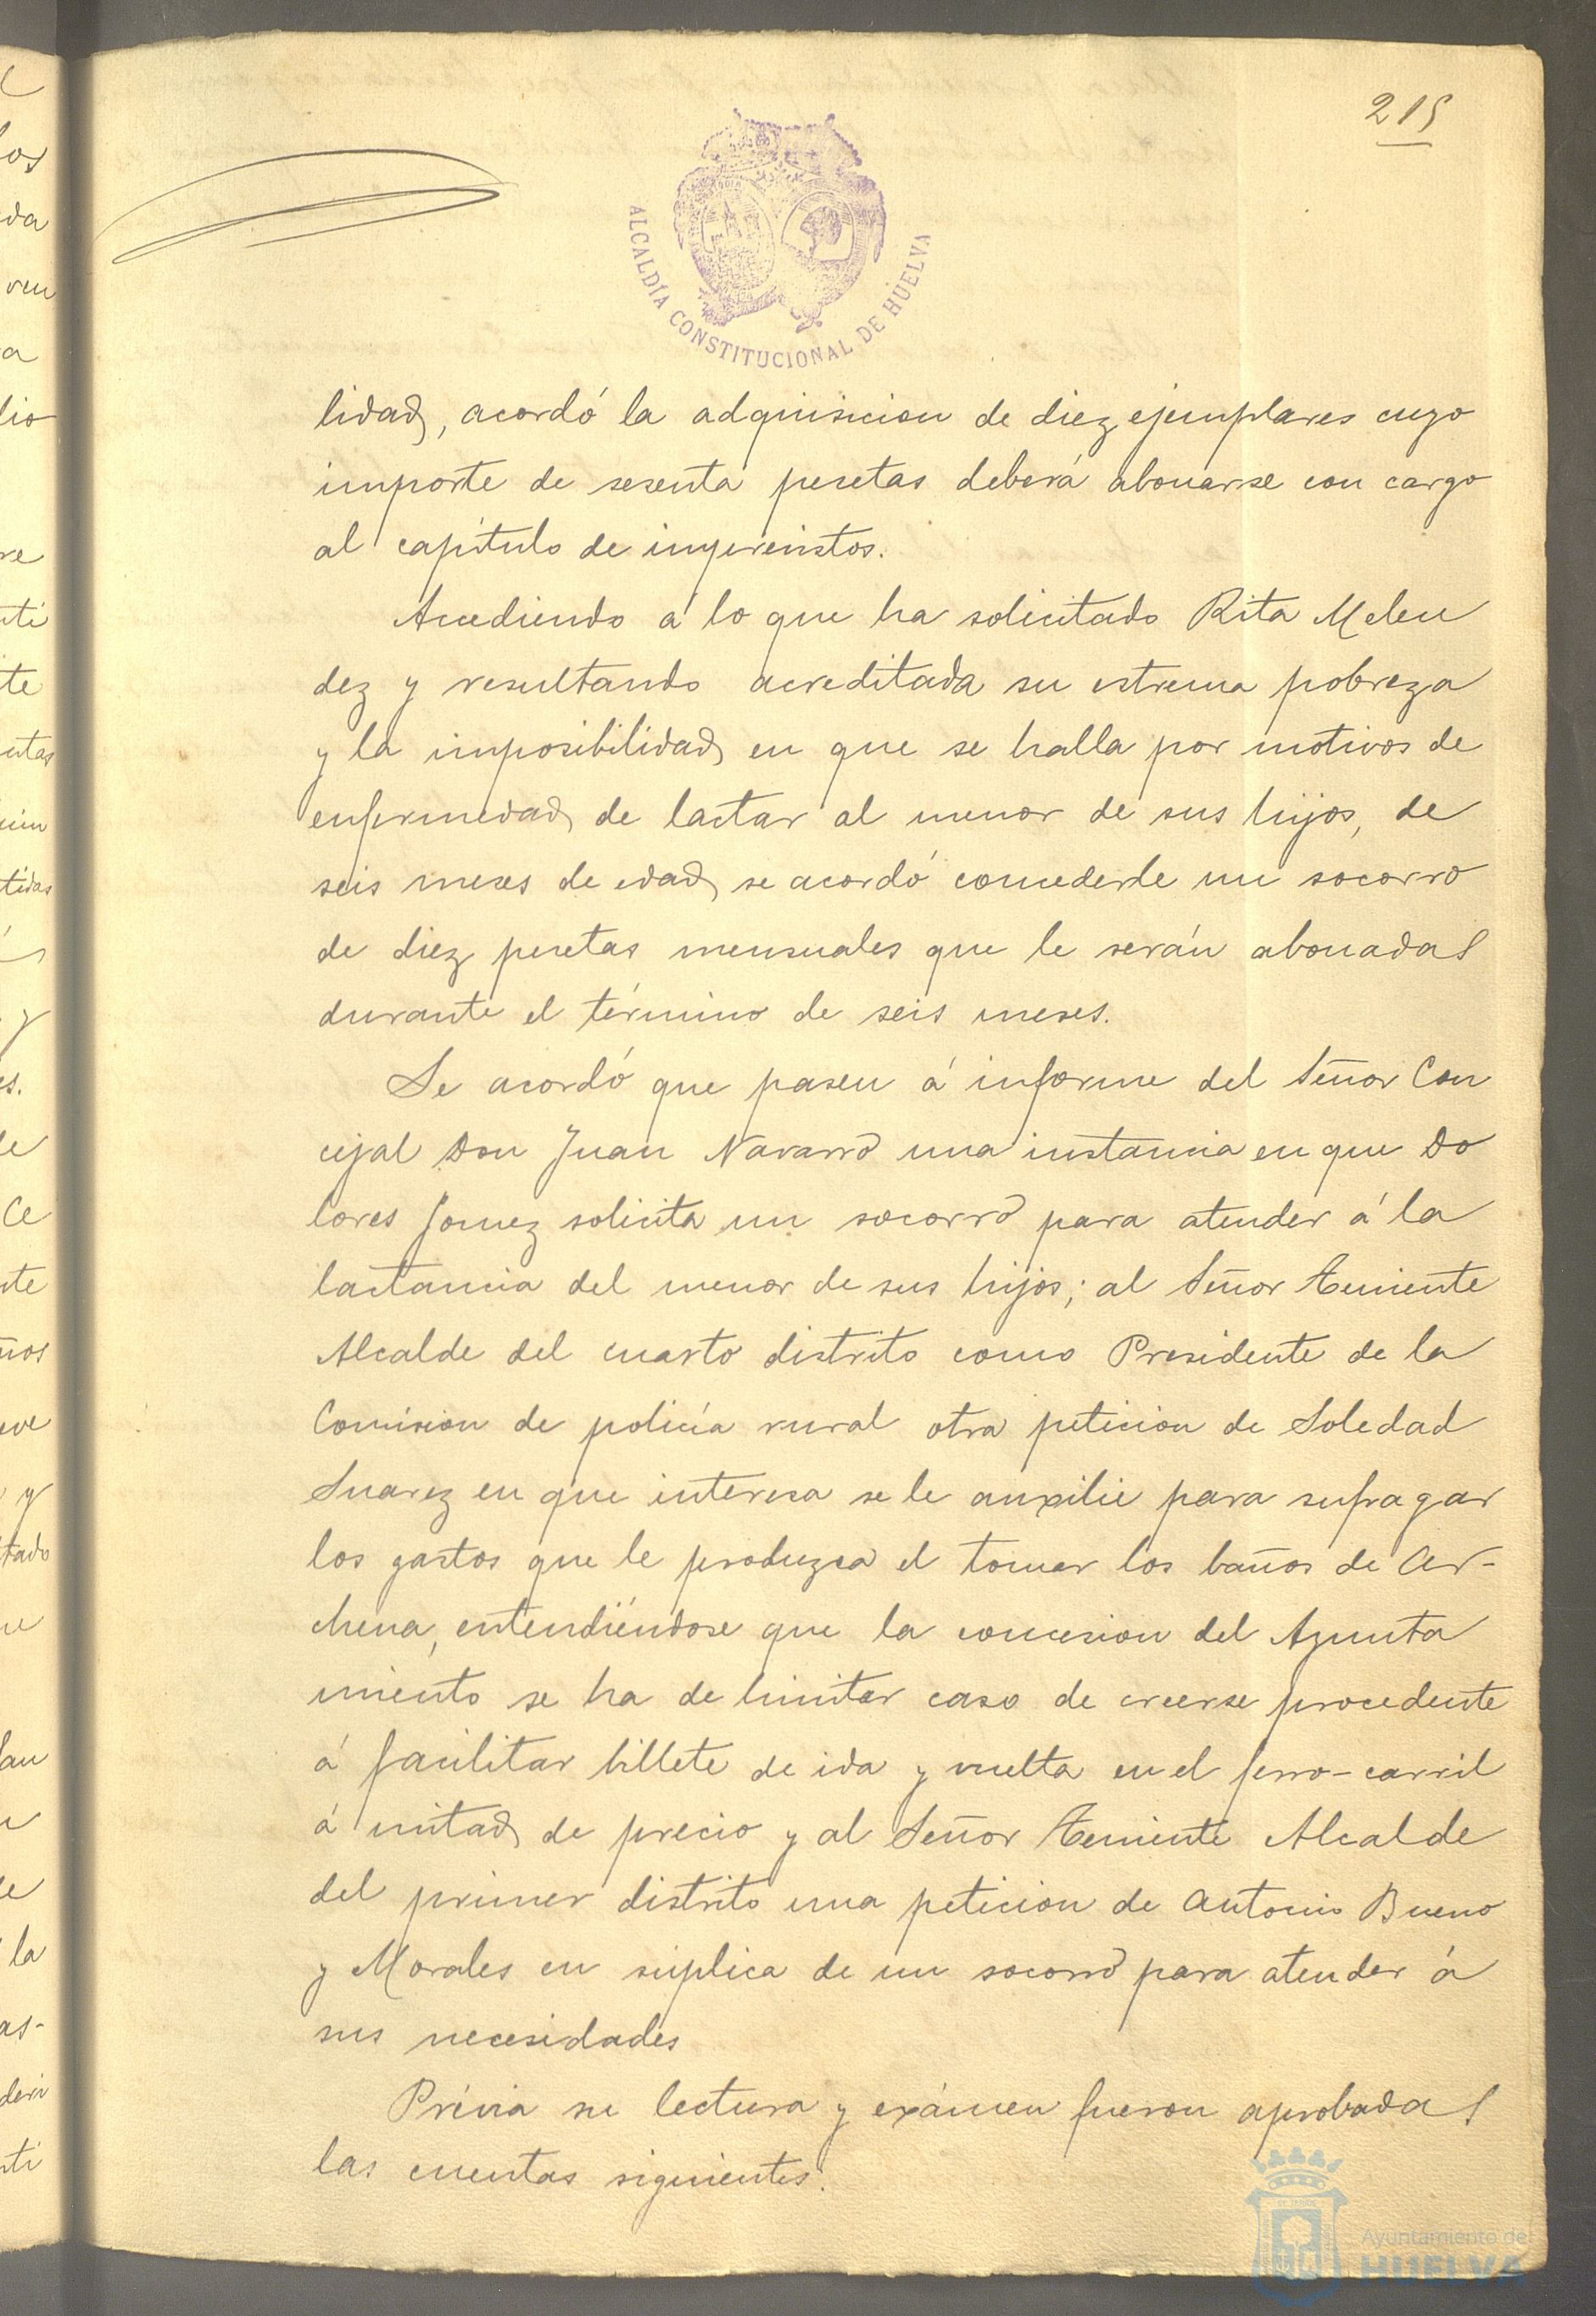 215
ALCALDÍA CONSTITUCIONAL DE HUELVA
lidad, acordó la adquisicion de diez ejemplares cuyo
importe de sesenta pesetas deberá abonarse con cargo
al capítulo de imprevistos.
Accediendo á lo que ha solicitado Rita Melen
dez y resultando acreditada su estrema pobreza
y la imposibilidad en que se halla por motivos de
enfermedad de lactar al menor de sus hijos, de
seis meses de edad se acordó concederle un socorro
de diez pesetas mensuales que le serán abonadas
durante el término de seis meses.
Se acordó que pasen á informe del Señor Con
cejal Don Juan Navarro una instancia en que Do
lores Gomez solicita un socorro para atender á la
lactancia del menor de sus hijos; al Señor Teniente
Alcalde del cuarto distrito como Presidente de la
Comision de policía rural otra peticion de Soledad
Suarez en que interesa se le auxilie para sufragar
los gastos que le produzca el tomar los baños de Ar-
chena, entendiéndose que la concesion del Ayunta
miento se ha de limitar caso de creerse procedente
á facilitar billete de ida y vuelta en el ferro-carril
á mitad de precio y al Señor Teniente Alcalde
del primer distrito una peticion de Antonio Bueno
y Morales en súplica de un socorro para atender á
sus necesidades
Prévia su lectura y exámen fueron aprobadas
las cuentas siguientes:
Ayuntamiento de
HUELVA